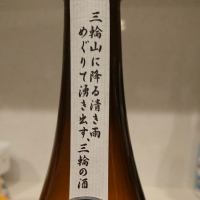 三輪山に降る清き雨
めぐりて湧き出す、三輪の酒